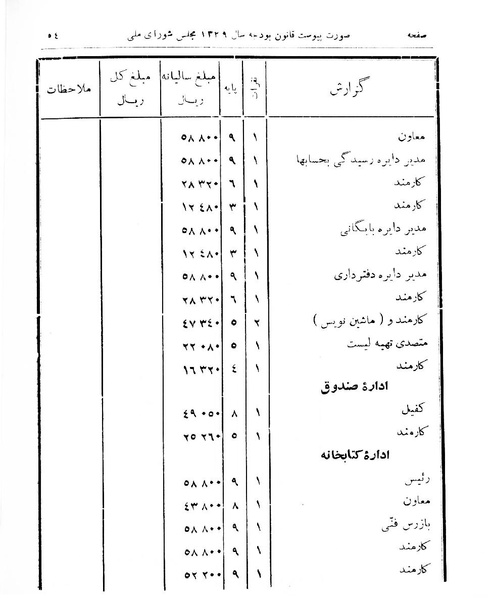 صفحه صورت پیوست قانون بودجه سال ۱۳۲۹ مجلس شورای ملی ٥٤
گزارش نفرات پایه مبلغ سالیانه ریال مبلغ کل ریال ملاحظات
معاون ۱ ۹ ٥۸ ۸۰۰
مدیر دایره رسیدگی بحسابها ۱ ۹ ٥۸ ۸۰۰
کارمند ۱ ٦ ۲۸ ۳۲۰
کارمند ۱ ۳ ۱۲ ٤۸۰
مدیر دایره بایگانی ۱ ۹ ٥۸ ۸۰۰
کارمند ۱ ۳ ۱۲ ٤۸۰
مدیر دایره دفترداری ۱ ۹ ٥۸ ۸۰۰
کارمند ۱ ٦ ۲۸ ۳۲۰
کارمند و ( ماشین نویس ) ۲ ٥ ٤۷ ۳٤۰
متصدی تهیه لیست ۱ ٥ ۲۲ ۰۸۰
کارمند ۱ ٤ ۱٦ ۳۲۰
ادارۀ صندوق
کفیل ۱ ۸ ٤۹ ۰٥۰
کارمند ۱ ٥ ۲٥ ۲٦۰
ادارۀ کتابخانه
رئیس ۱ ۹ ٥۸ ۸۰۰
معاون ۱ ۸ ٤۳ ۸۰۰
بازرس فنّی ۱ ۹ ٥۸ ۸۰۰
کارمند ۱ ۹ ٥۸ ۸۰۰
کارمند ۱ ۹ ٥۲ ۲۰۰